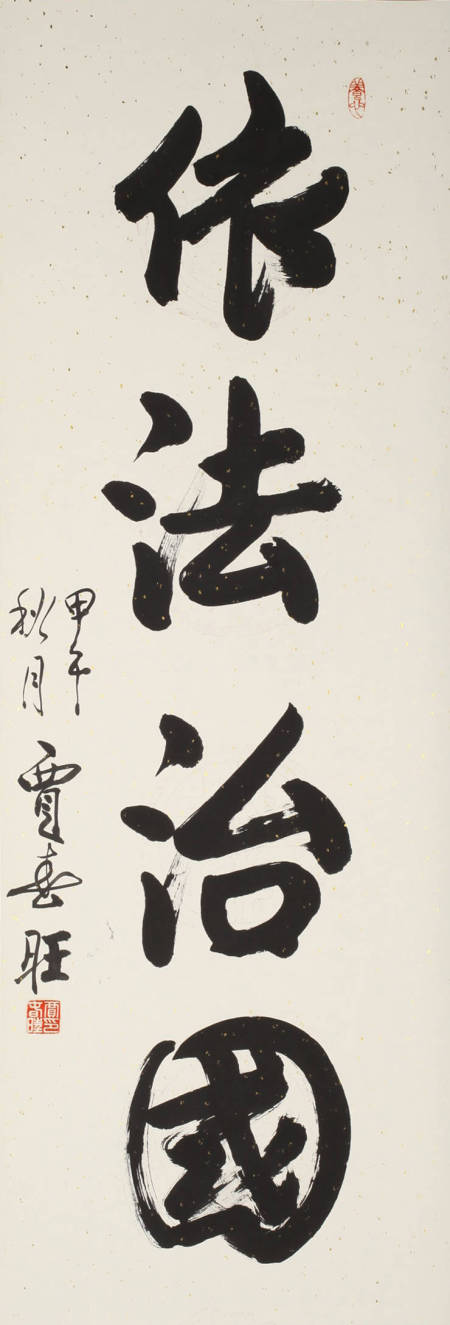 依法治國
甲午
秋月
賈春旺